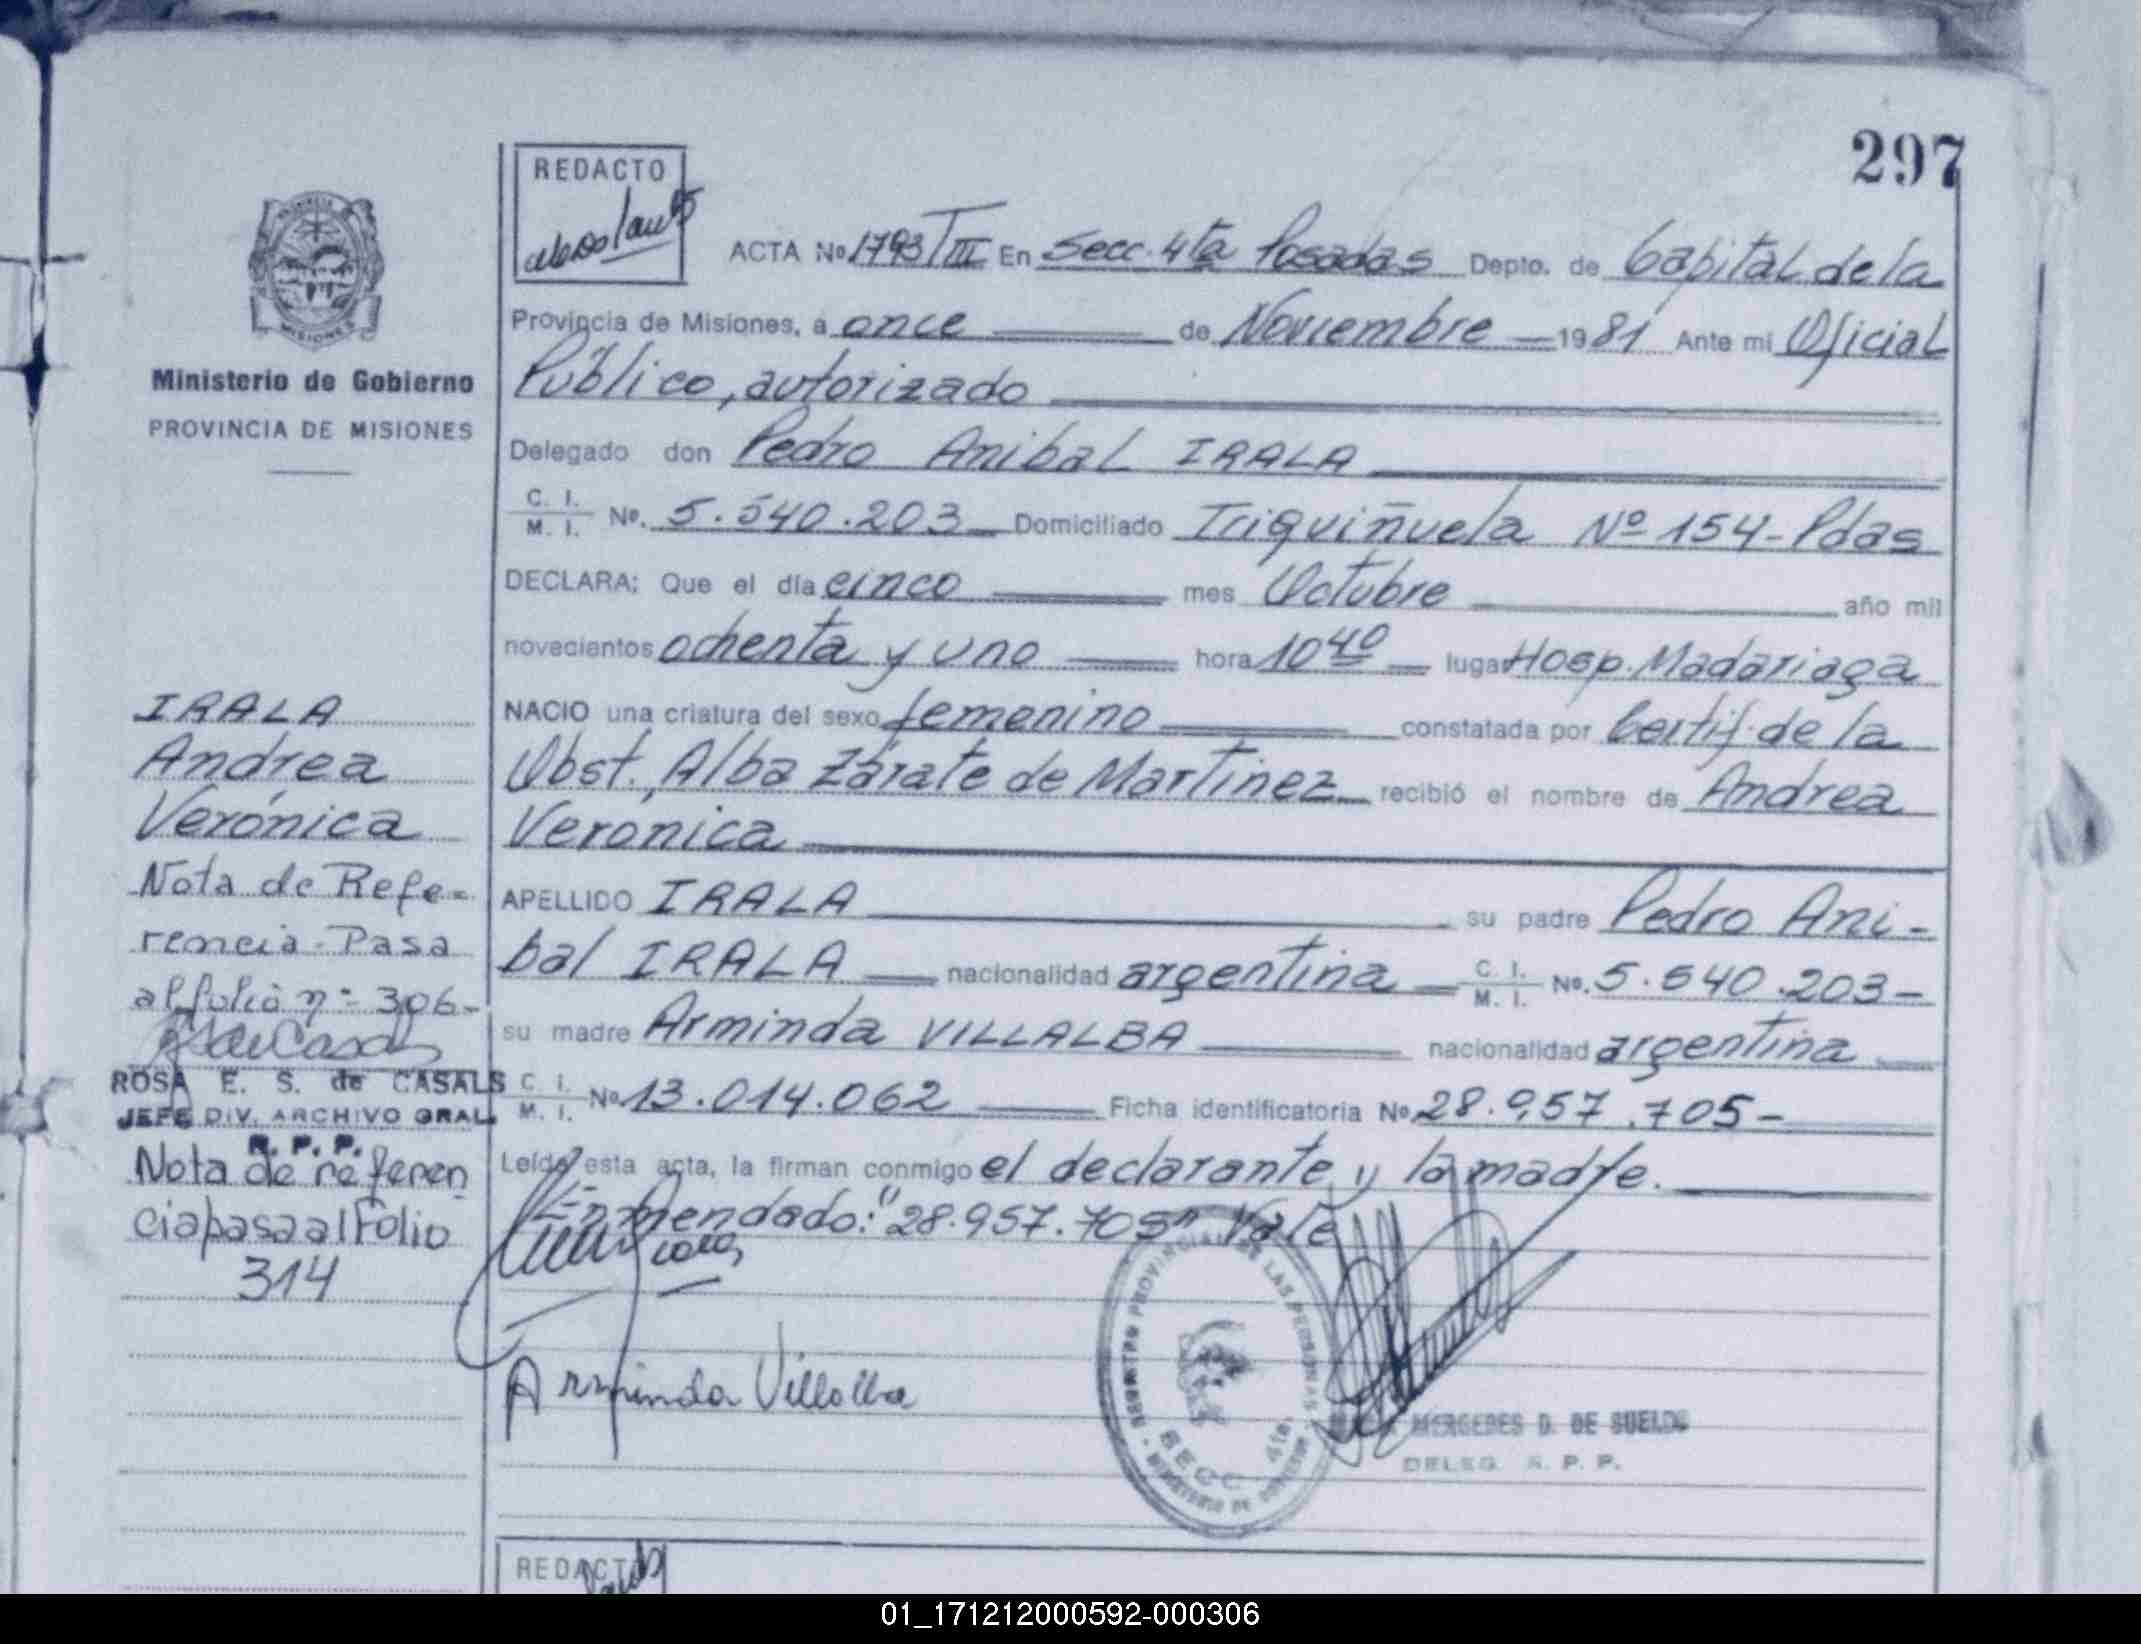 297
REDACTO
ACTA Nº 1793 TIII En Secc. 4ta Posadas Depto. de Capital de la
Provincia de Misiones, a once de Noviembre 1981 Ante mi Oficial
Público, autorizado
Delegado don Pedro Anibal IRALA
C. I. M. I. Nº. 5.540.203 Domiciliado Triquiñuela Nº 154 - Pdas
DECLARA: Que el día cinco mes Octubre año mil
novecientos ochenta y uno hora 10 40 lugar Hosp. Madariaga
NACIO una criatura del sexo femenino constatada por Certif. de la
Obst. Alba Zárate de Martinez recibió el nombre de Andrea
Verónica
APELLIDO IRALA su padre Pedro Ani-
bal IRALA nacionalidad argentina C. I. M. I. Nº. 5.540.203-
su madre Arminda VILLALBA nacionalidad argentina
C. I. M. I. Nº 13.014.062 Ficha identificatoria Nº 28.957.705-
Leída esta acta, la firman conmigo el declarante y la madre.
Enmendado: "28.957.705" Vale
Arminda Villalba
REGISTRO PROVINCIAL DE LAS PERSONAS
MINISTERIO DE GOBIERNO
SECC. 4ta.
MERCEDES D. DE SUELDO
DELEG. R. P. P.
REDACTO
PROVINCIA
MISIONES
Ministerio de Gobierno
PROVINCIA DE MISIONES
IRALA
Andrea
Verónica
Nota de Refe-
rencia - Pasa
al folio nº 306-
ROSA E. S. de CASALS
JEFE DIV. ARCHIVO GRAL.
R. P. P.
Nota de referen
cia pasa al Folio
314
01_171212000592-000306